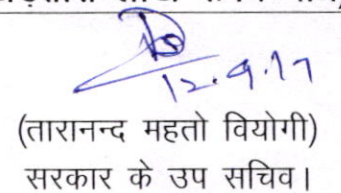 12.9.17
(तारानन्द महतो वियोगी)
सरकार के उप सचिव।